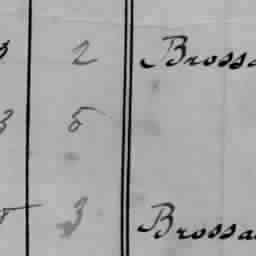 3 2 Bross
3 5
5 3 Brossa